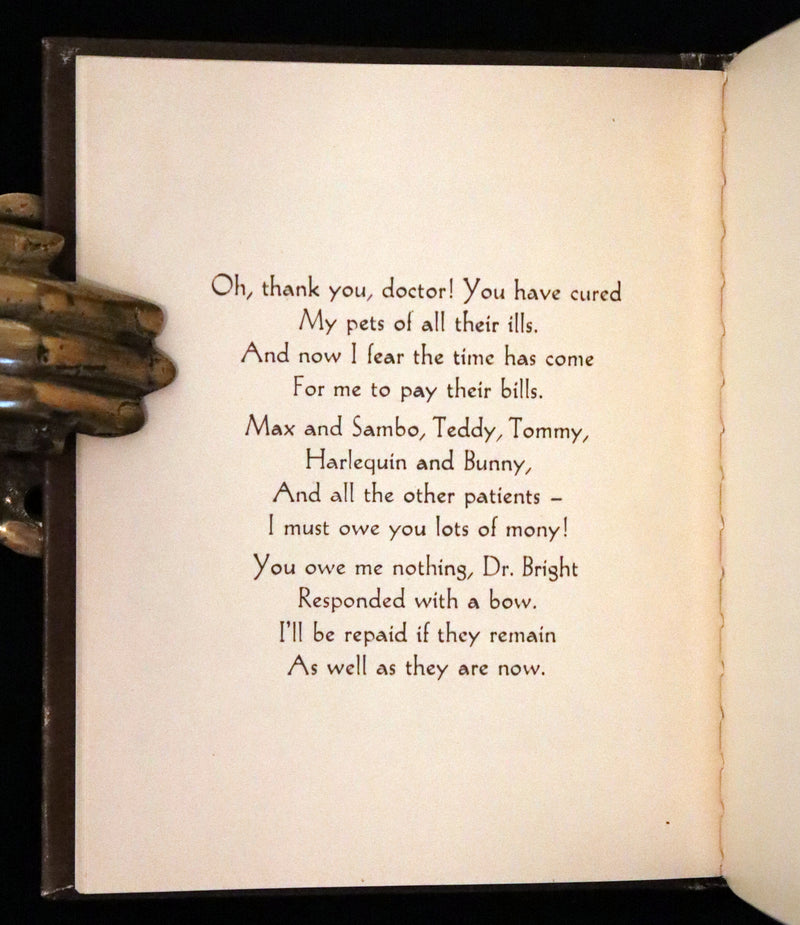 Oh, thank you, doctor! You have cured
My pets of all their ills.
And now I fear the time has come
For me to pay their bills.
Max and Sambo, Teddy, Tommy,
Harlequin and Bunny,
And all the other patients –
I must owe you lots of mony!
You owe me nothing, Dr. Bright
Responded with a bow.
I'll be repaid if they remain
As well as they are now.